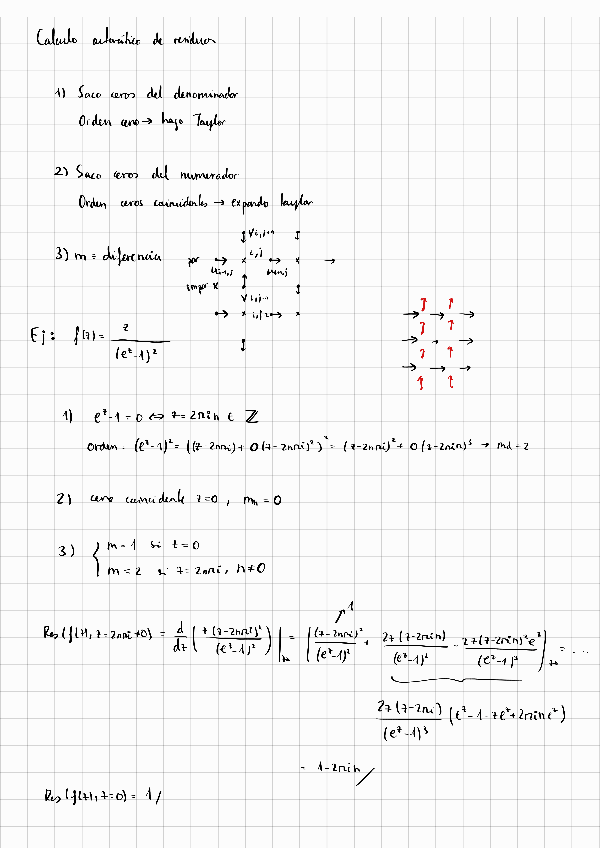 Calculo automático de residuos
1) Saco ceros del denominador
Orden cero → hago Taylor
2) Saco ceros del numerador
Orden ceros coincidentes → expando Taylor
3) m = diferencia
par
impar
Ej: f(z) = z / (e^z-1)^2
1) e^z-1 = 0 ⇔ z = 2πin ∈ ℤ
orden. (e^z-1)^2 = ((z-2nπi) + O(z-2nπi)^2)^2 = (z-2nπi)^2 + O(z-2nπi)^3 → md = 2
2) cero coincidente z=0, mn = 0
3) { m = 1 si z = 0
m = 2 si z = 2nπi, n≠0
Res(f(z), z=2nπi≠0) = d/dz ( z(z-2nπi)^2 / (e^z-1)^2 ) | = [ (z-2nπi)^2 / (e^z-1)^2 + 2z(z-2πin) / (e^z-1)^2 - 2z(z-2πin)^2 e^z / (e^z-1)^3 ] = ...
1
2z(z-2πi) / (e^z-1)^3 (e^z-1-ze^z+2πine^z)
= 1-2πin
Res(f(z), z=0) = 1